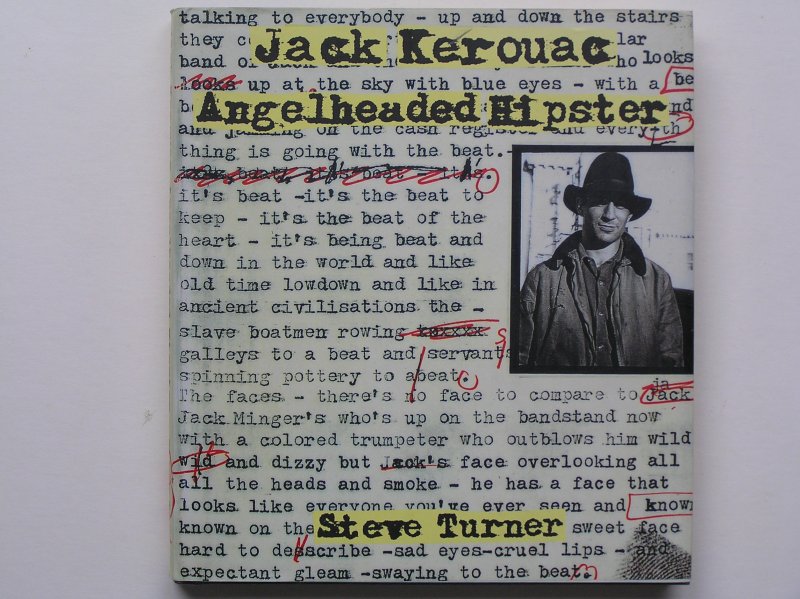 talking to everybody - up and down the stairs
they
lar
Jack Kerouac
band of
ho looks
up at the sky with blue eyes - with a be
Angelheaded Hipster
nd
and on the cash register and every th
thing is going with the beat.-
it's beat -it's the beat to
keep - it's the beat of the
heart - it's being beat and
down in the world and like
old time lowdown and like in
ancient civilisations the -
slave boatmen rowing
galleys to a beat and servants
spinning pottery to abeat.
The faces - there's no face to compare to Jack
Jack Minger's who's up on the bandstand now
with a colored trumpeter who outblows him wild
wid and dizzy but Jack's face overlooking all
all the heads and smoke - he has a face that
looks like everyone you've ever seen and known
known on the
Steve Turner
sweet face
hard to desscribe -sad eyes-cruel lips - and
expectant gleam -swaying to the beat.